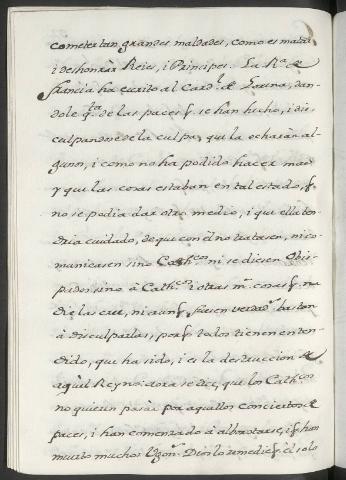 cometer tan grandes maldades, como es matar
i deshonrar Reies, i Principes. La R.ª de
francia ha escrito al Card.l de Lorena, dan-
dole q.ta de las paces q. se han hecho, i dis-
culpandose de la culpa, que la echaràn al-
gunos, i como no ha podido hacer mas
y que las cosas estaban en tal estado, q.
no se podia dar otro medio, i que ella ten-
dria cuidado, de que con èl no tratasen, ni co-
municasen sino Cath.cos ni se diesen Obis-
pados sino à Cath.cos i otras m.s cosas q. na-
die las cree, ni aunq. fuesen verdad.s bastan
à disculparlas, porq. todos tienen enten-
dido, que ha sido, i es la destruccion de
aquel Reyno: aora se dice, que los Cath.cos
no quieren pasàr por aquellos conciertos de
paces, i han comenzado à alborotarse, i q. han
muerto muchos Ugon.s Dios lo remedie q. èl solo